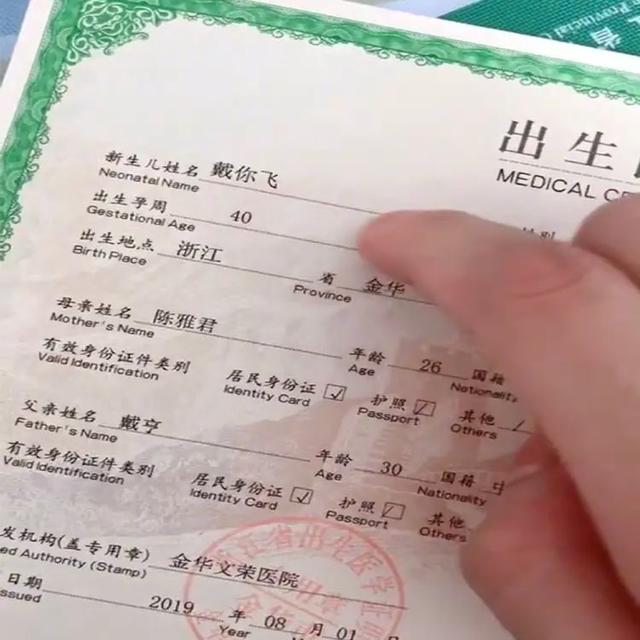 省
Provincial
出生
MEDICAL CE
新生儿姓名 戴你飞
Neonatal Name
出生孕周 40
Gestational Age
出生地点 浙江 省 金华
Birth Place Province
母亲姓名 陈雅君 年龄 26 国籍
Mother's Name Age Nationality
有效身份证件类别 居民身份证 ☑ 护照 其他
Valid Identification Identity Card Passport Others
父亲姓名 戴亨 年龄 30 国籍
Father's Name Age Nationality
有效身份证件类别 居民身份证 ☑ 护照 其他
Valid Identification Identity Card Passport Others
发机构(盖专用章) 金华文荣医院
ed Authority (Stamp)
日期 2019 年 08 月 01
ssued Year